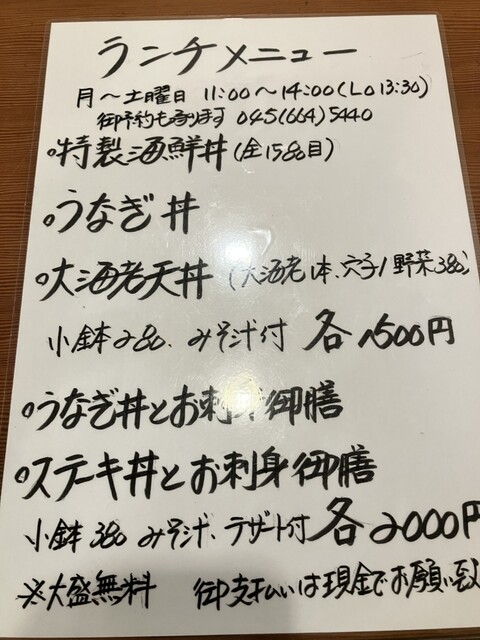 ランチメニュー
月～土曜日 11:00～14:00(LO 13:30)
御予約も承ります 045(664)5440
○特製海鮮丼(全15品目)
○うなぎ丼
○大海老天丼(大海老1本、穴子1野菜3品)
小鉢2品、みそ汁付 各1500円
○うなぎ丼とお刺身御膳
○ステーキ丼とお刺身御膳
小鉢3品 みそ汁、デザート付 各2000円
※大盛無料 御支払いは現金でお願い致